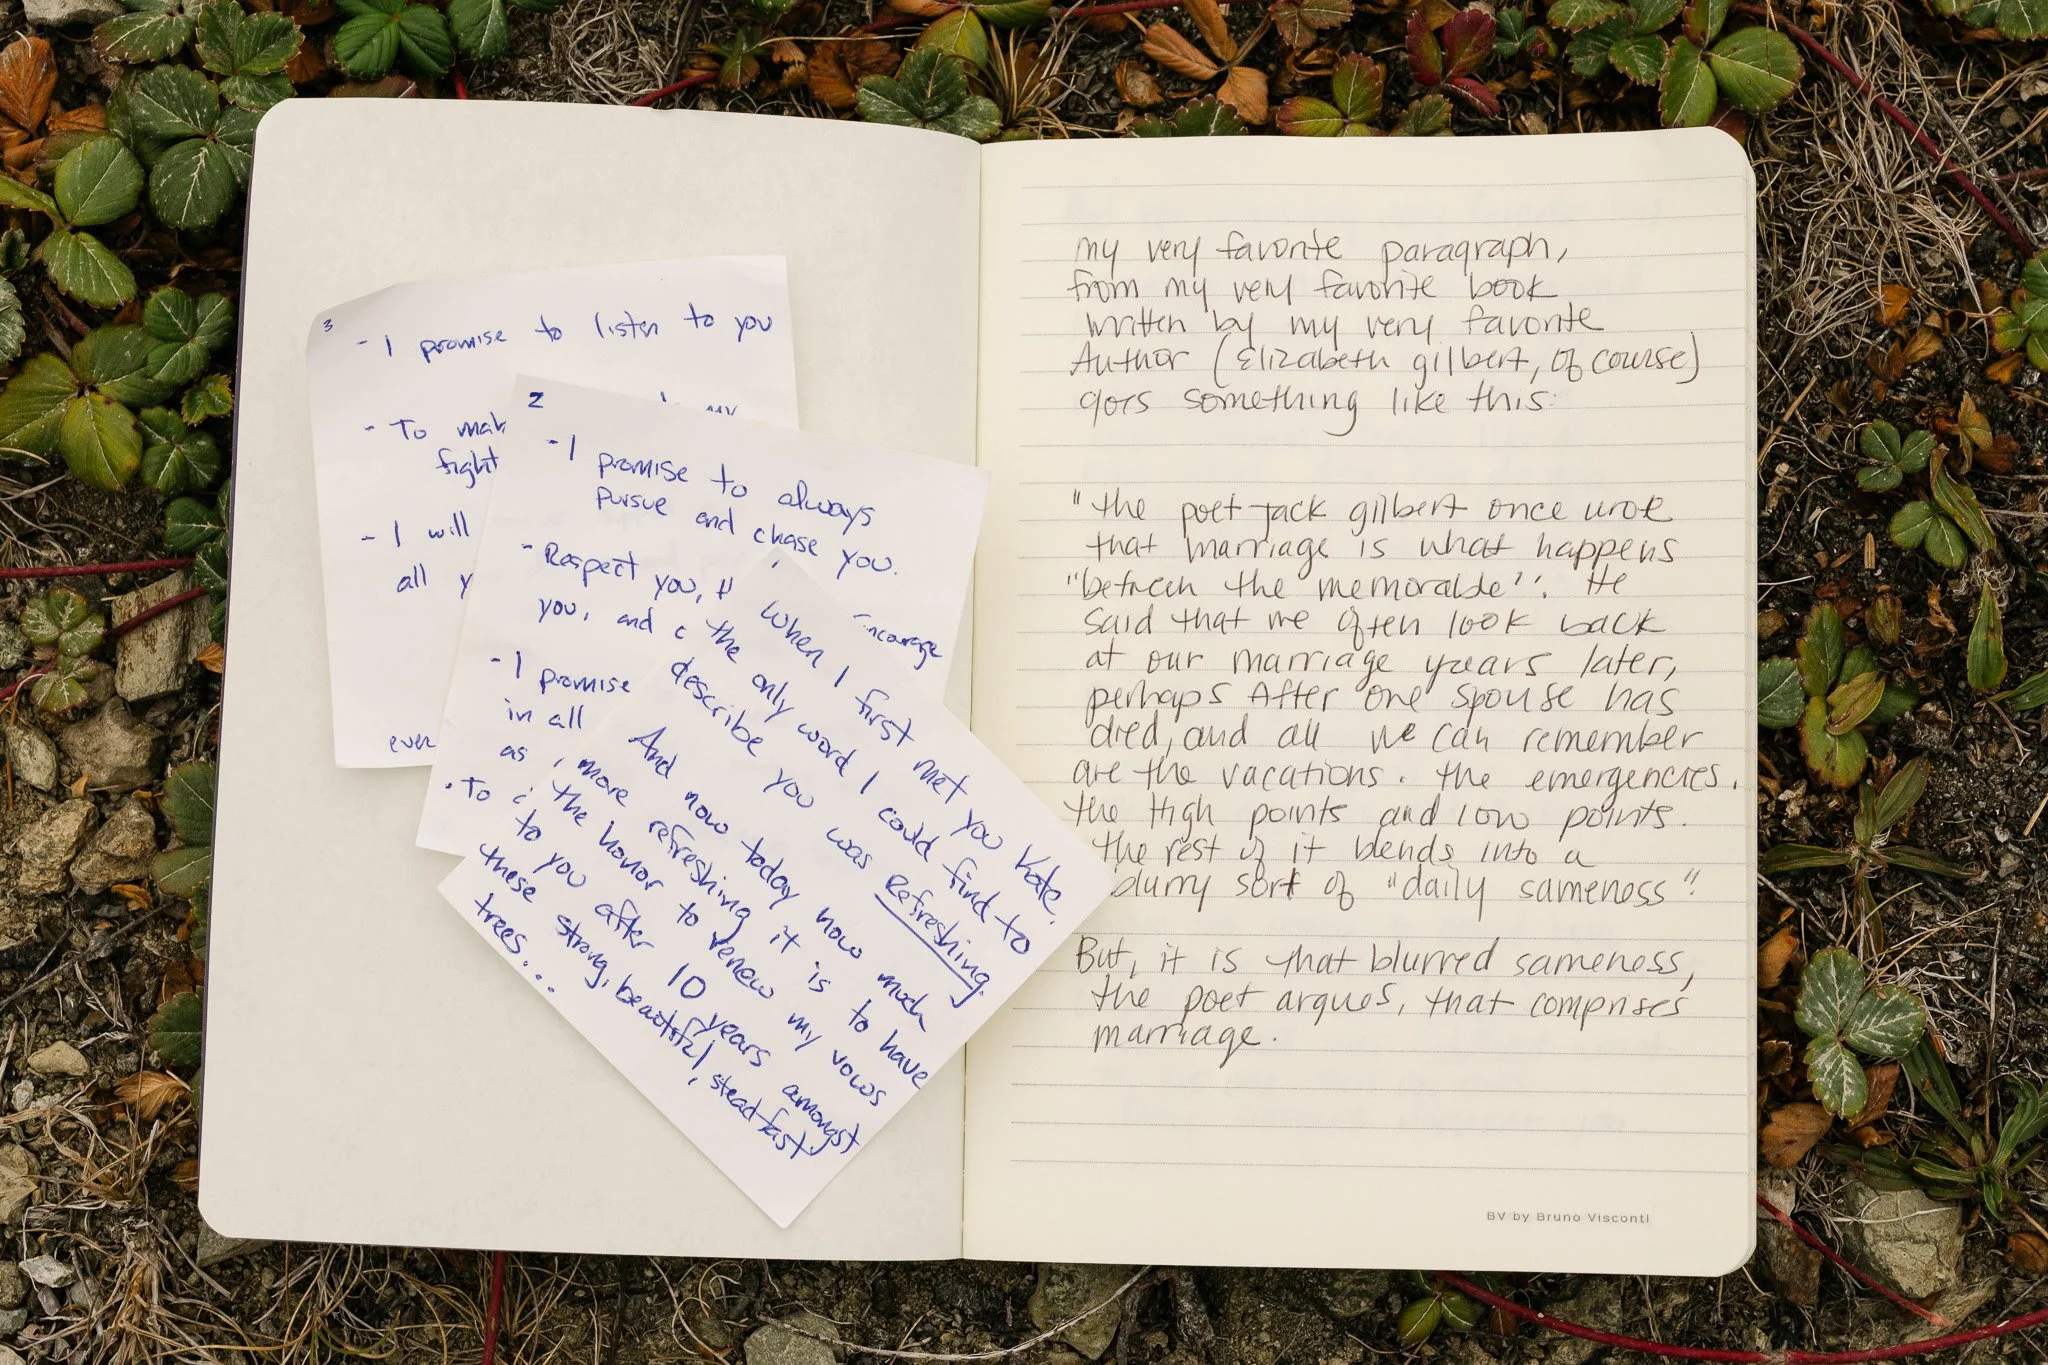 3
- I promise to listen to you
- To
fight
- I will
all
ever
2
- I promise to always
pursue and chase you.
- Respect you,
you, and
encourage
- I promise
in all
as
. To
When I first met you Kate.
the only word I could find to
describe you was Refreshing.
And now today how much
more refreshing it is to have
the honor to renew my vows
to you after 10 years amongst
these strong, beautiful, steadfast
trees...
my very favorite paragraph,
from my very favorite book
written by my very favorite
Author (Elizabeth gilbert, of course)
goes something like this:
"the poet Jack gilbert once wrote
that marriage is what happens
"between the memorable". He
said that we often look back
at our marriage years later,
perhaps After one spouse has
died, and all we can remember
are the vacations. the emergencies.
the High points and low points.
the rest of it blends into a
blurry sort of "daily sameness".
But, it is that blurred sameness,
the poet argues, that comprises
marriage.
BV by Bruno Visconti